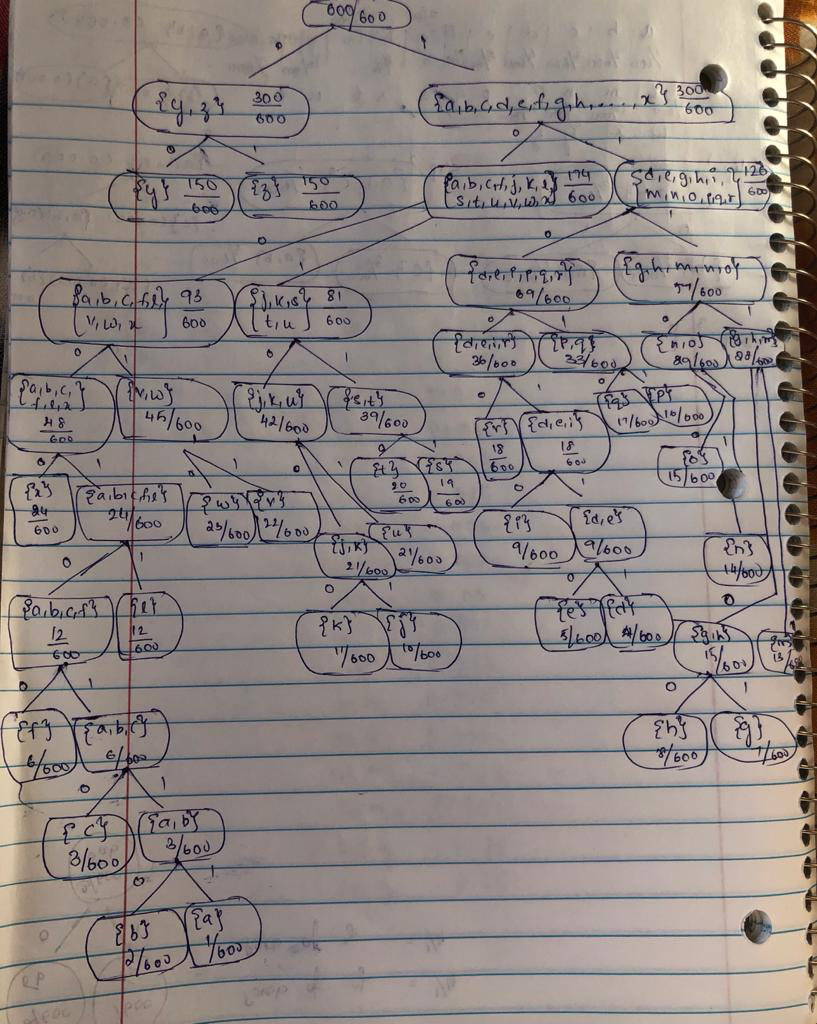 600/600
0 1
{y, z} 300/600
{a,b,c,d,e,f,g,h,....,x} 300/600
0 1 0 1
{y} 150/600
{z} 150/600
{a,b,c,f,j,k,l 174/600
s,t,u,v,w,x}
{d,e,g,h,i, 126/600
m,n,o,p,q,r}
0 1 0 1
{a,b,c,f,l 93/600
v,w,x}
{j,k,s 81/600
t,u}
{d,e,i,p,q,r}
69/600
{g,h,m,n,o}
57/600
0 1 0 1 0 1 0 1
{a,b,c,
f,l,x}
48/600
{v,w}
45/600
{j,k,u}
42/600
{s,t}
39/600
{d,e,i,r}
36/600
{p,q}
33/600
{n,o}
29/600
{g,h,m}
28/600
0 1 0 1 0 1 0 1 0 1
{x}
24/600
{a,b,c,f,l}
24/600
{w}
23/600
{v}
22/600
{t}
20/600
{s}
19/600
{r}
18/600
{d,e,i}
18/600
{q}
17/600
{p}
16/600
{o}
15/600
0 1 0 1
{j,k}
21/600
{u}
21/600
{i}
9/600
{d,e}
9/600
{n}
14/600
0 1 0 1 0 1 0 1
{a,b,c,f}
12/600
{l}
12/600
{k}
11/600
{j}
10/600
{e}
5/600
{d}
4/600
{g,h}
15/600
{m}
0 1 0 1
{f}
6/600
{a,b,c}
6/600
{h}
8/600
{g}
7/600
0 1
{c}
3/600
{a,b}
3/600
0 1
{b}
2/600
{a}
1/600